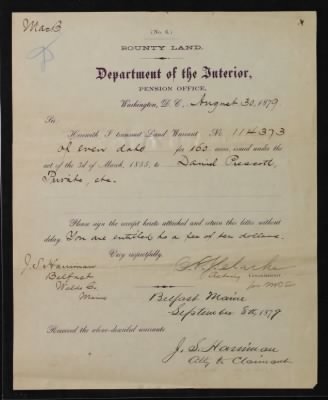 Mac B
(No. 6.)
BOUNTY LAND.
Department of the Interior,
PENSION OFFICE,
Washington, D. C., August 30, 1879
Sir:
Herewith I transmit Land Warrant No. 114373
of even date for 160 acres, issued under the
act of the 3d of March, 1855, to Daniel Prescott,
Private, etc.
Please sign the receipt hereto attached and return this letter without
delay. You are entitled to a fee of ten dollars.
Very respectfully,
J. S. Harriman
Belfast
Waldo Co.
Maine
Commissioner
Belfast Maine
September 8th, 1879
Received the above-described warrant.
J. S. Harriman
Atty to Claimant